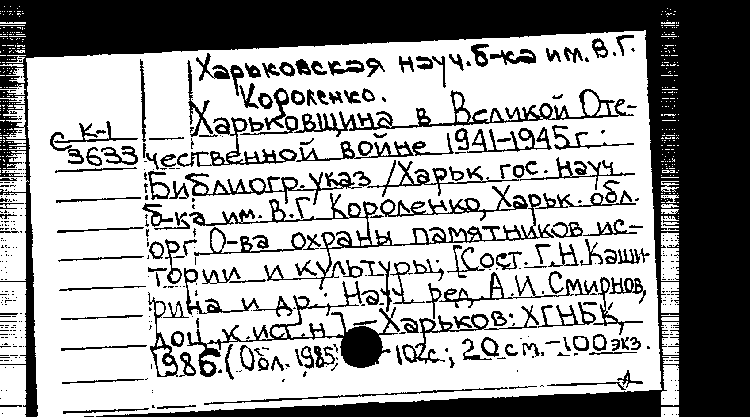 Харьковская науч. б-ка им. В.Г.
Короленко.
Харьковщина в Великой Оте-
С К-1
3633
чественной войне 1941-1945г.:
Библиогр. указ /Харьк. гос. науч
б-ка им. В.Г. Короленко, Харьк. обл.
орг. О-ва охраны памятников ис-
тории и культуры; [Сост. Г.Н. Каши-
рина и др.; Науч ред. А.И. Смирнов,
доц., к.ист.н]. — Харьков: ХГНБК,
1986. (Обл. 1985) -102с.; 20см. -100экз.